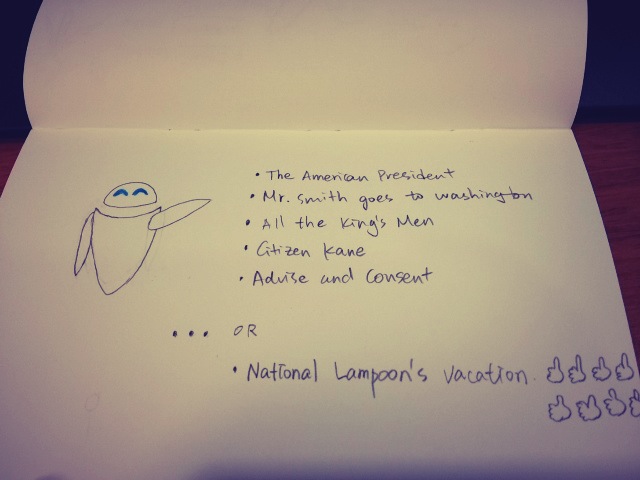 • The American President
• Mr. Smith goes to washington
• All the King's Men
• Citizen Kane
• Advise and Consent
... OR
• National Lampoon's vacation.